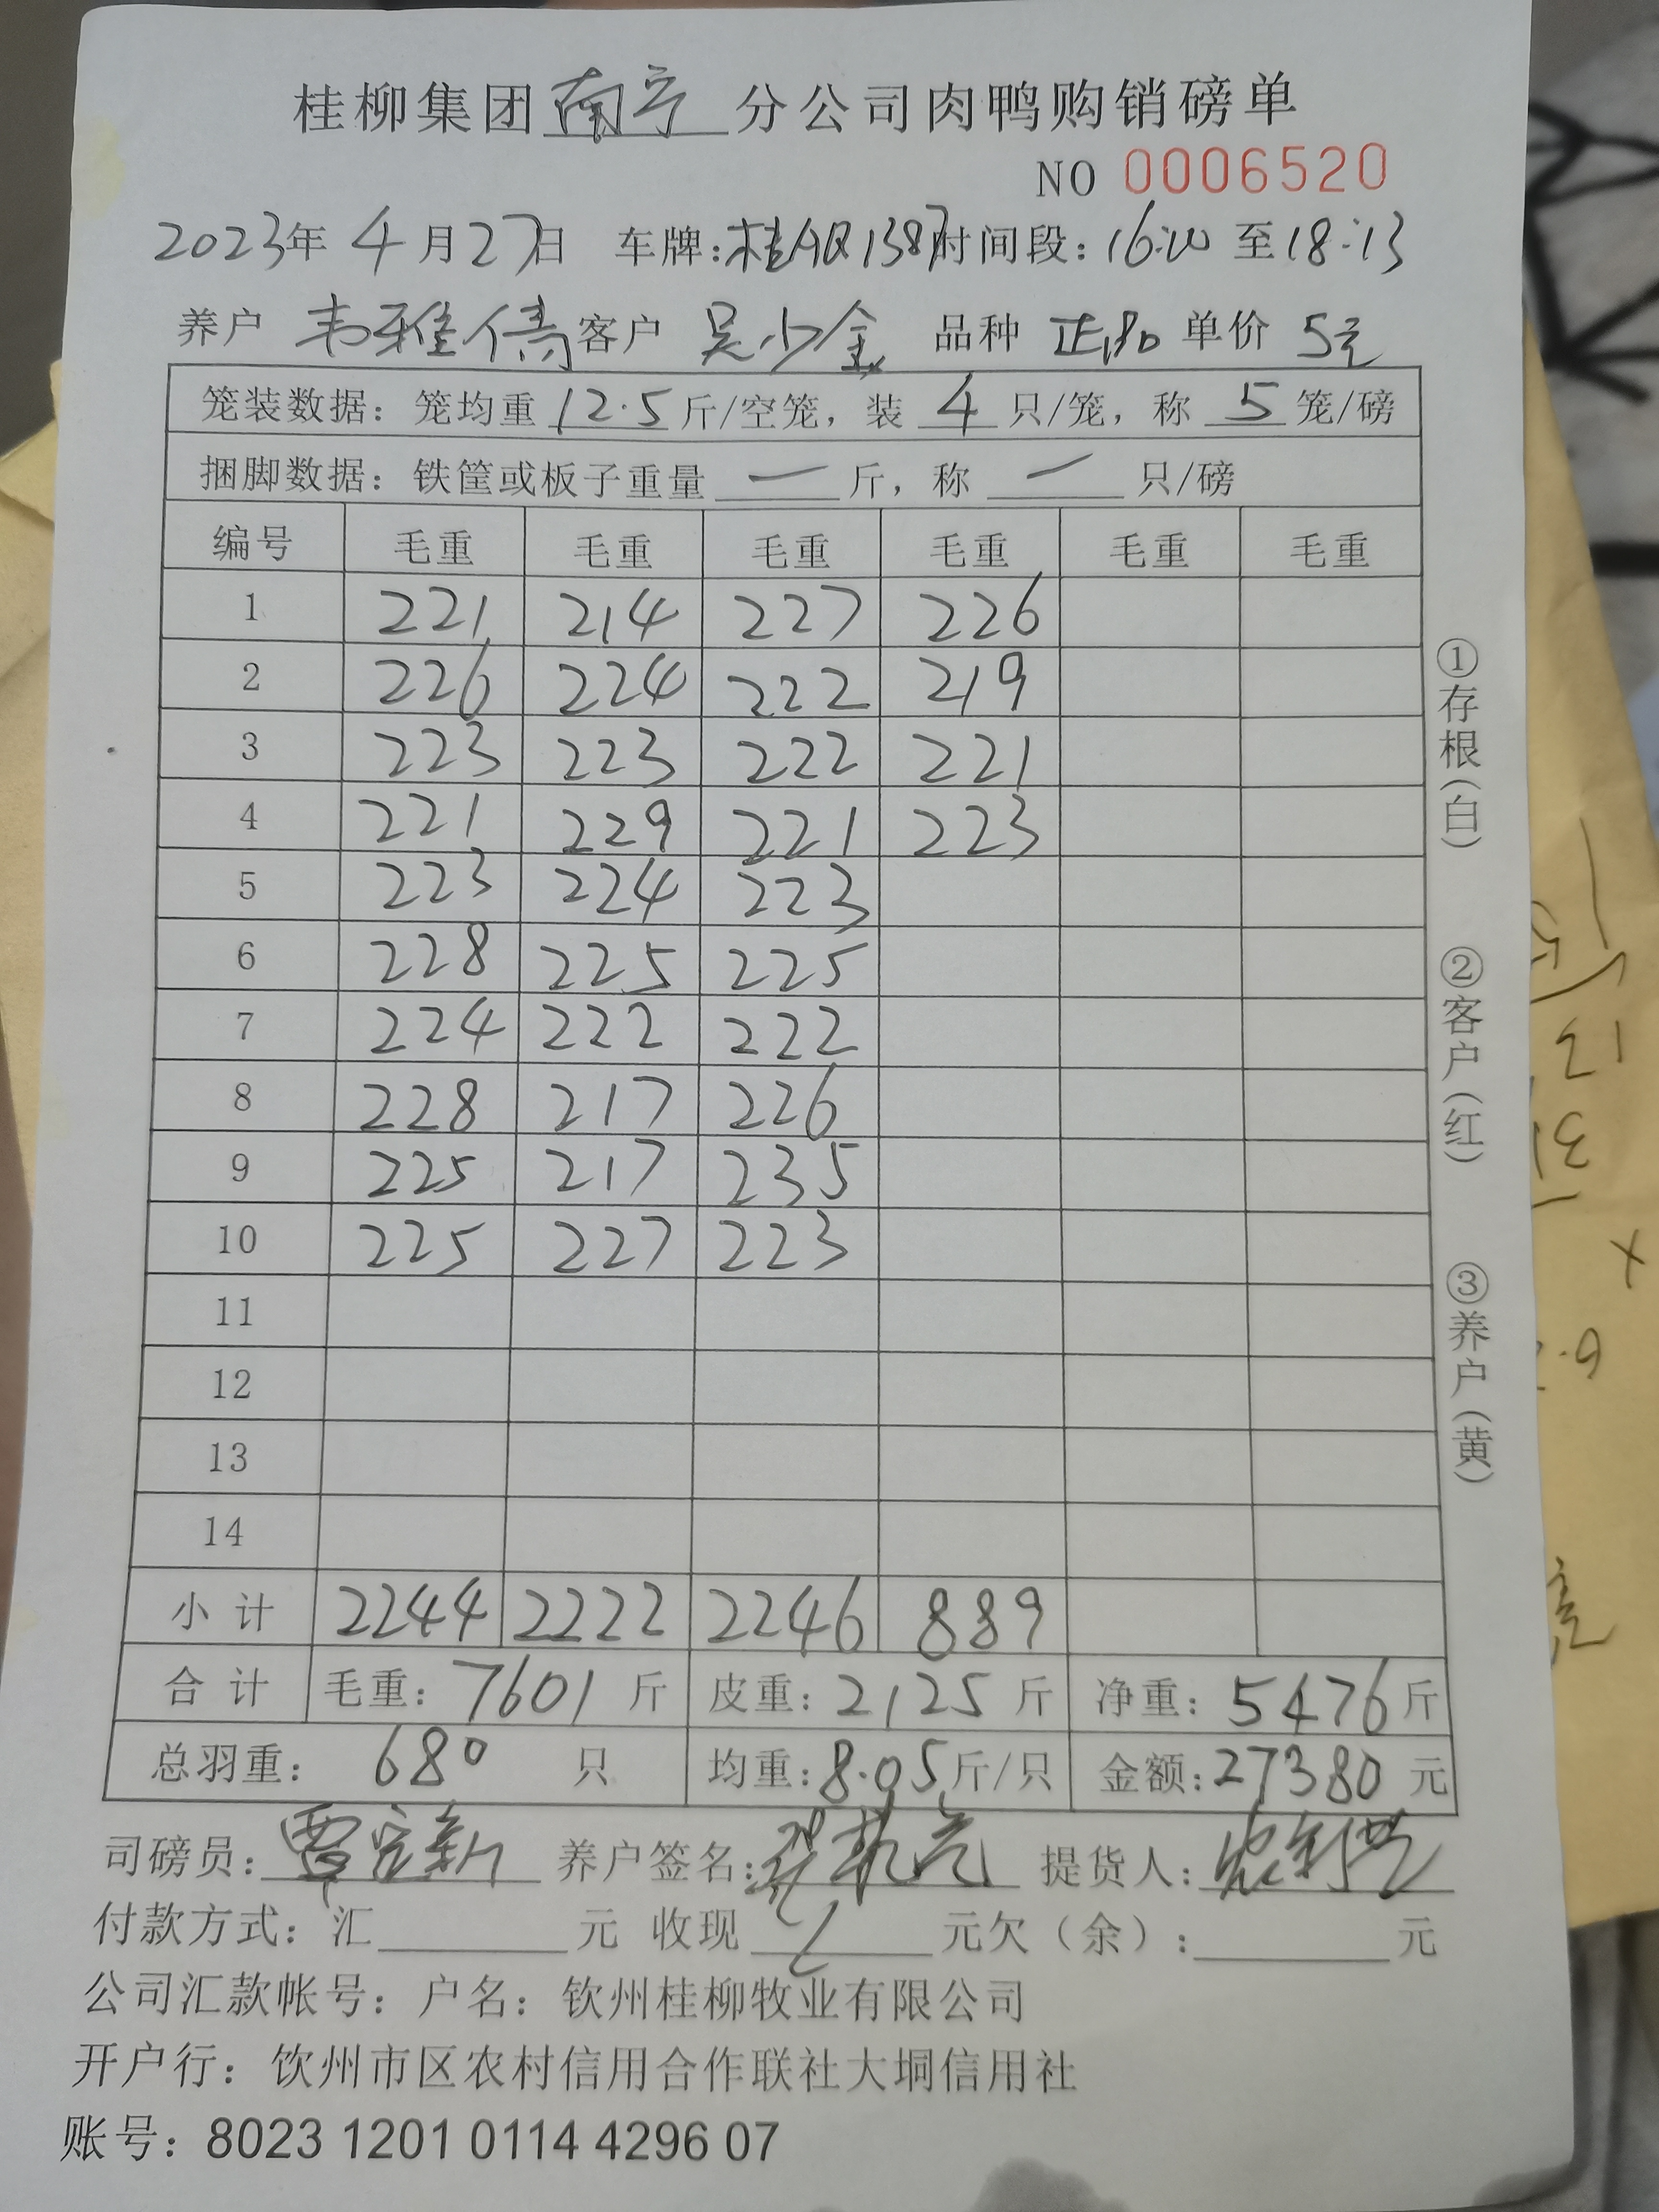 桂柳集团南宁分公司肉鸭购销磅单
NO 0006520
2023年4月27日 车牌: 时间段: 至18:13
养户 韦雅倩 客户 吴少金 品种 单价 5元
笼装数据：笼均重12.5斤/空笼，装4只/笼，称5笼/磅
捆脚数据：铁筐或板子重量 一 斤，称 一 只/磅
编号 毛重 毛重 毛重 毛重 毛重 毛重
1 221 214 227 226
2 226 224 222 219
3 223 223 222 221
4 221 229 221 223
5 223 224 223
6 228 225 225
7 224 222 222
8 228 217 226
9 225 217 235
10 225 227 223
11
12
13
14
小计 2244 2222 2246 889
合计 毛重：7601斤 皮重：2125斤 净重：5476斤
总羽重：680只 均重：8.05斤/只 金额：27380元
司磅员： 养户签名： 提货人：
付款方式：汇 元 收现 元欠（余）： 元
公司汇款帐号：户名：钦州桂柳牧业有限公司
开户行：饮州市区农村信用合作联社大垌信用社
账号：8023 1201 0114 4296 07
①存根（白）
②客户（红）
③养户（黄）